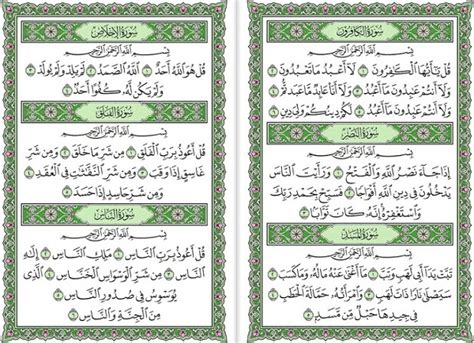 سُورَةُ الكَافِرُونَ
بِسْمِ اللَّهِ الرَّحْمَٰنِ الرَّحِيمِ
قُلْ يَٰٓأَيُّهَا ٱلْكَٰفِرُونَ ١ لَآ أَعْبُدُ مَا تَعْبُدُونَ ٢
وَلَآ أَنتُمْ عَٰبِدُونَ مَآ أَعْبُدُ ٣ وَلَآ أَنَا۠ عَابِدٌ مَّا عَبَدتُّمْ ٤
وَلَآ أَنتُمْ عَٰبِدُونَ مَآ أَعْبُدُ ٥ لَكُمْ دِينُكُمْ وَلِيَ دِينِ ٦
سُورَةُ النَّصْرِ
بِسْمِ اللَّهِ الرَّحْمَٰنِ الرَّحِيمِ
إِذَا جَآءَ نَصْرُ ٱللَّهِ وَٱلْفَتْحُ ١ وَرَأَيْتَ ٱلنَّاسَ
يَدْخُلُونَ فِى دِينِ ٱللَّهِ أَفْوَاجًا ٢ فَسَبِّحْ بِحَمْدِ رَبِّكَ
وَٱسْتَغْفِرْهُ إِنَّهُۥ كَانَ تَوَّابًۢا ٣
سُورَةُ المَسَدِ
بِسْمِ اللَّهِ الرَّحْمَٰنِ الرَّحِيمِ
تَبَّتْ يَدَآ أَبِى لَهَبٍ وَتَبَّ ١ مَآ أَغْنَىٰ عَنْهُ مَالُهُۥ وَمَا كَسَبَ ٢
سَيَصْلَىٰ نَارًا ذَاتَ لَهَبٍ ٣ وَٱمْرَأَتُهُۥ حَمَّالَةَ ٱلْحَطَبِ ٤
فِى جِيدِهَا حَبْلٌ مِّن مَّسَدٍۭ ٥
سُورَةُ الإِخْلَاصِ
بِسْمِ اللَّهِ الرَّحْمَٰنِ الرَّحِيمِ
قُلْ هُوَ ٱللَّهُ أَحَدٌ ١ ٱللَّهُ ٱلصَّمَدُ ٢ لَمْ يَلِدْ وَلَمْ يُولَدْ ٣
وَلَمْ يَكُن لَّهُۥ كُفُوًا أَحَدٌۢ ٤
سُورَةُ الفَلَقِ
بِسْمِ اللَّهِ الرَّحْمَٰنِ الرَّحِيمِ
قُلْ أَعُوذُ بِرَبِّ ٱلْفَلَقِ ١ مِن شَرِّ مَا خَلَقَ ٢ وَمِن شَرِّ
غَاسِقٍ إِذَا وَقَبَ ٣ وَمِن شَرِّ ٱلنَّفَّٰثَٰتِ فِى ٱلْعُقَدِ ٤
وَمِن شَرِّ حَاسِدٍ إِذَا حَسَدَ ٥
سُورَةُ النَّاسِ
بِسْمِ اللَّهِ الرَّحْمَٰنِ الرَّحِيمِ
قُلْ أَعُوذُ بِرَبِّ ٱلنَّاسِ ١ مَلِكِ ٱلنَّاسِ ٢ إِلَٰهِ
ٱلنَّاسِ ٣ مِن شَرِّ ٱلْوَسْوَاسِ ٱلْخَنَّاسِ ٤ ٱلَّذِى
يُوَسْوِسُ فِى صُدُورِ ٱلنَّاسِ ٥
مِنَ ٱلْجِنَّةِ وَٱلنَّاسِ ٦